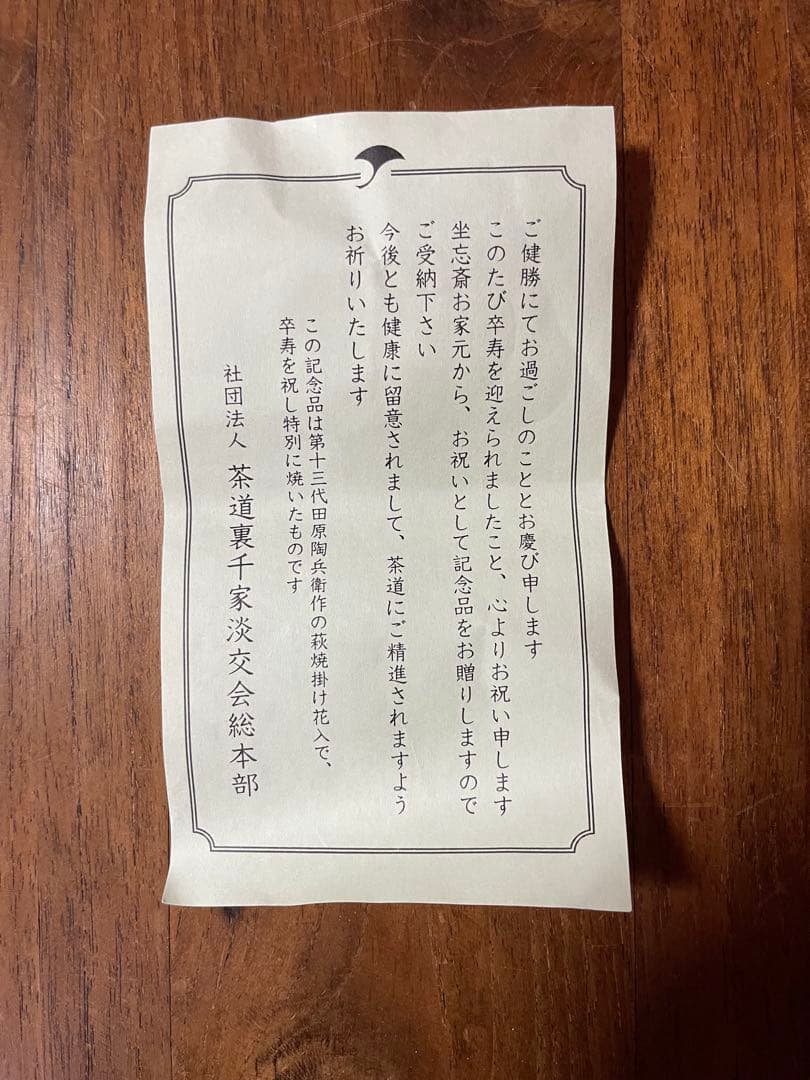 ご健勝にてお過ごしのこととお慶び申します
このたび卒寿を迎えられましたこと、心よりお祝い申します
坐忘斎お家元から、お祝いとして記念品をお贈りしますので
ご受納下さい
今後とも健康に留意されまして、茶道にご精進されますよう
お祈りいたします
この記念品は第十三代田原陶兵衛作の萩焼掛け花入で、
卒寿を祝し特別に焼いたものです
社団法人 茶道裏千家淡交会総本部